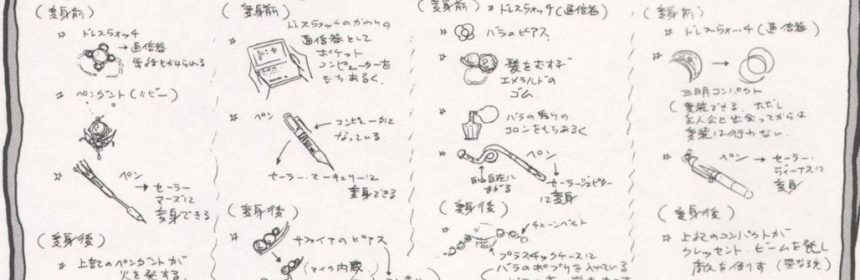 (変身前)
☆ ドレスウォッチ
→通信器
☆ ペンダント(ルビー)
☆ ペン
→セーラー
マーズに
変身できる
(変身後)
☆ 上記のペンダントが
火を発する
(変身前)
ドレスウォッチのかわりの
☆ 通信器として
ポケット
コンピューターを
もちあるく.
☆ ペン
コンピューターに
なっている
セーラー・マーキュリーに
変身できる
(変身後)
☆ サファイアのピアス
(マイク内蔵)
(変身前)
☆ ドレスウォッチ(通信器)
☆ バラのピアス
☆ 髪をむすぶ
エメラルドの
ゴム
☆ バラの香りの
コロンをもちあるく
☆ ペン
自由自在に
まがる
→セーラージュピター
に変身
(変身後)
☆ チェーンベルト
プラスチックケースに
バラのポプリを入れている
(変身前)
☆ ドレスウォッチ(通信器)
☆
三日月コンパクト
(変装できる. ただし
主人公と出会ってからは
変装は行わない.
☆ ペン → セーラー・
ヴィーナスに
変身
(変身後)
☆ 上記のコンパクトが
クレッセント・ビームを発し
敵を倒す